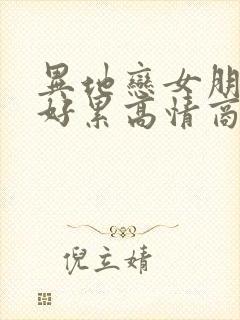 異地戀女朋
好累高情商
倪立婧